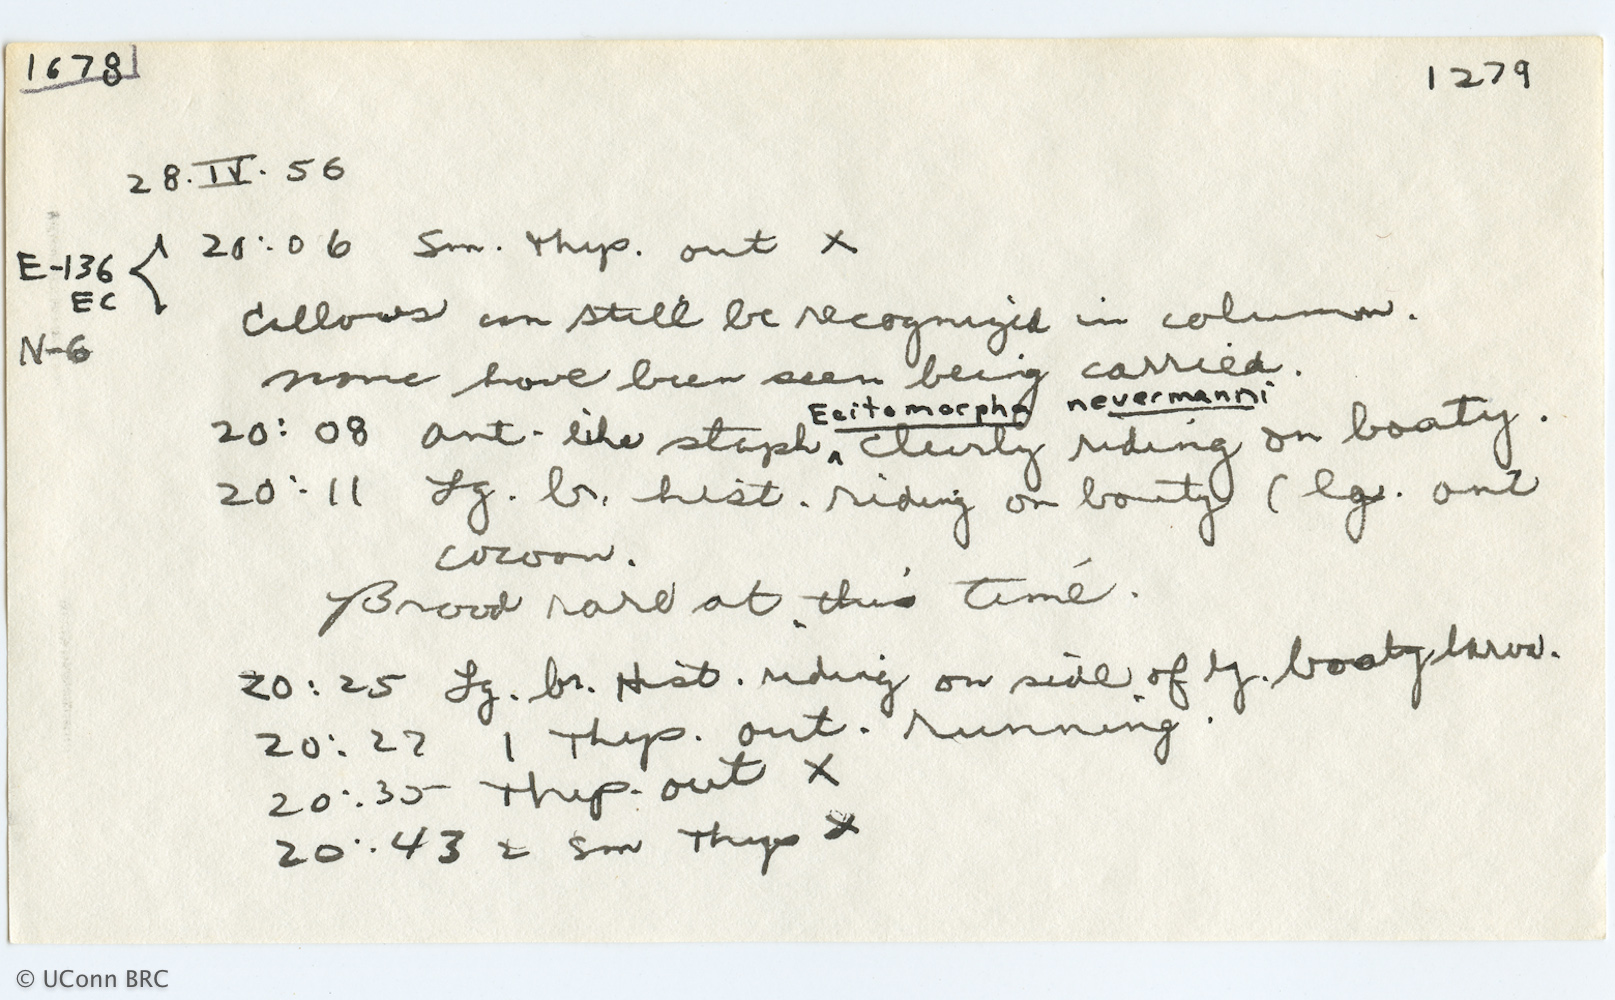 1678
1279
28.IV.56
E-136
EC
N-6
20:06 Sm. Thyp. out X
Callows can still be recognized in column.
None have been seen being carried.
Ecitomorpha nevermanni
20:08 ant-like staph ^ clearly riding on booty.
20:11 Lg. br. hist. riding on booty ( lg. ant
cocoon.
Brood rare at this time.
20:25 Lg. br. Hist. riding on side of lg. booty larva.
20:27 1 Thyp. out. running.
20:35 Thyp. out X
20:43 2 Sm Thyp X
© UConn BRC